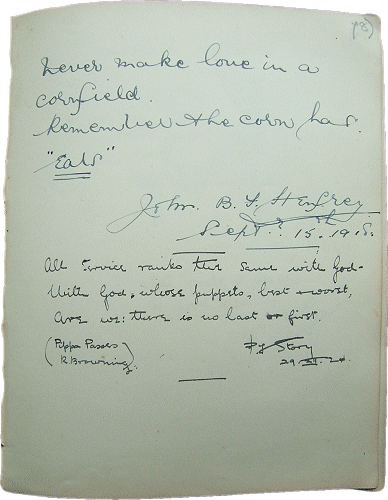 (78)
Never make love in a
cornfield.
Remember the corn has.
"Ears"
John. B. F. Henfrey
Sept. 15th. 1918.
All service ranks the same with God-
With God, whose puppets, best & worst,
Are we: there is no last or first.
(Pippa Passes
R. Browning.)
Story
29.